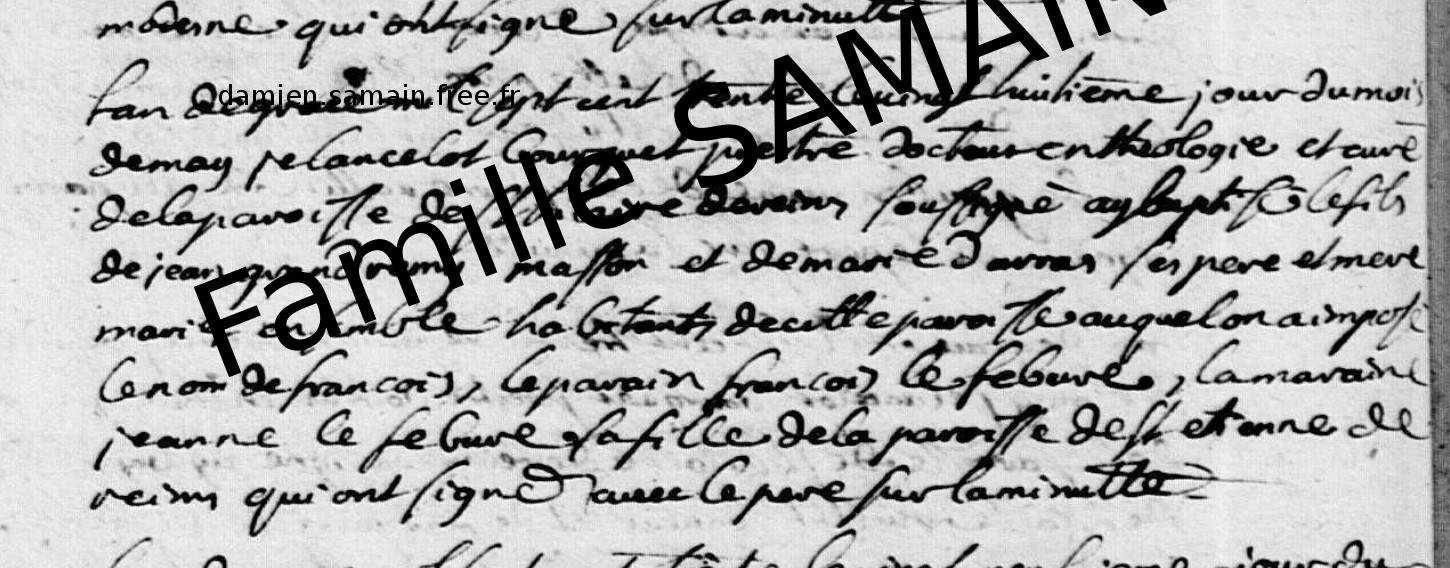 moderne qui ont signe sur la minutte
lan de grace mil sept cent trente le vingt huitieme jour du mois
damien.samain.free.fr
Famille SAMAIN
de may je lancelot Bourquet prestre docteur en theologie et curé
de la paroisse de st hilaire de reims soussigné ay baptisé le fils
de jean grand remy masson et de marie Darras ses pere et mere
mariés ensemble habitants de cette paroisse auquel on a imposé
le nom de francois, le parain francois le febure, la maraine
jeanne le febure sa fille de la paroisse de st etienne de
reims qui ont signé avec le pere sur la minutte